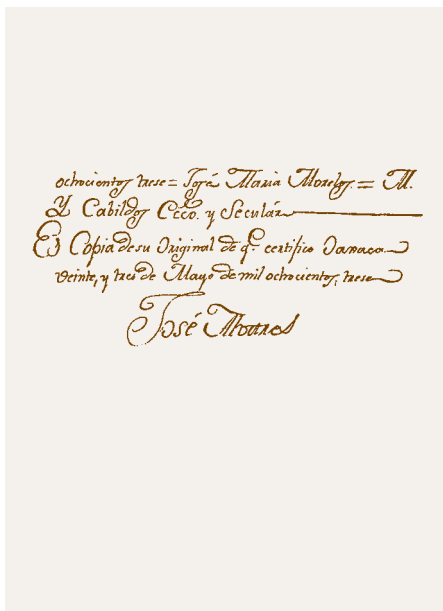 ochocientos trese = José Maria Morelos. = M.
Y Cabildos Ecco. y Secular
Es Copia de su Original de q.e certifico Oaxaca
veinte, y tres de Mayo de mil ochocientos, trese
José